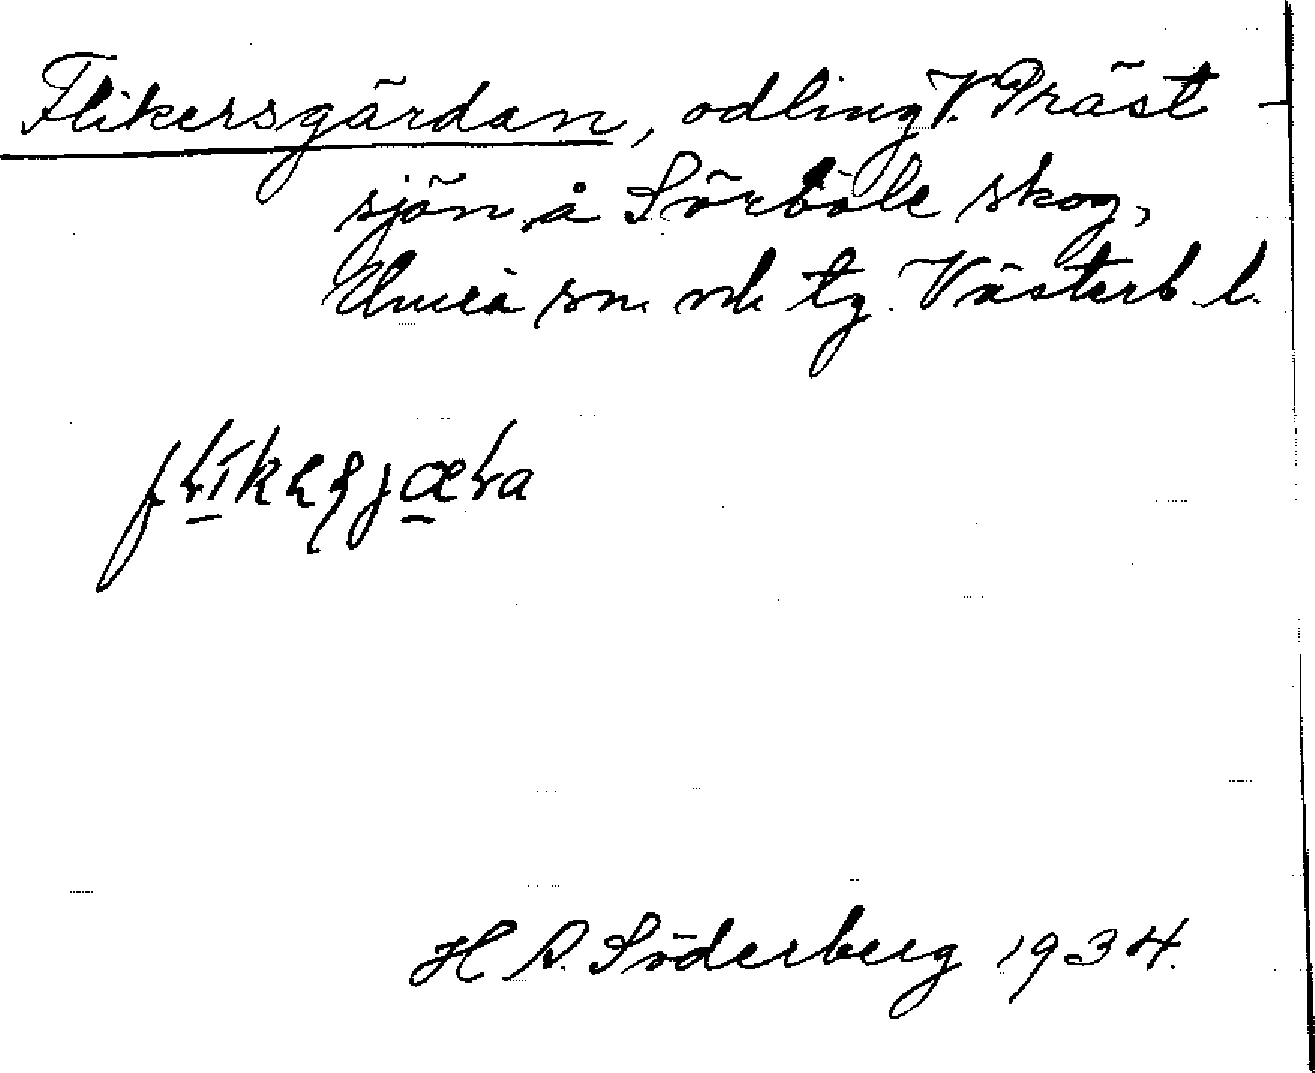 Flikersgärdan, odling V. Präst-
sjön å Sörböle skog,
Umeå sn. och tg. Västerb. l.
H. A. Söderberg 1934.